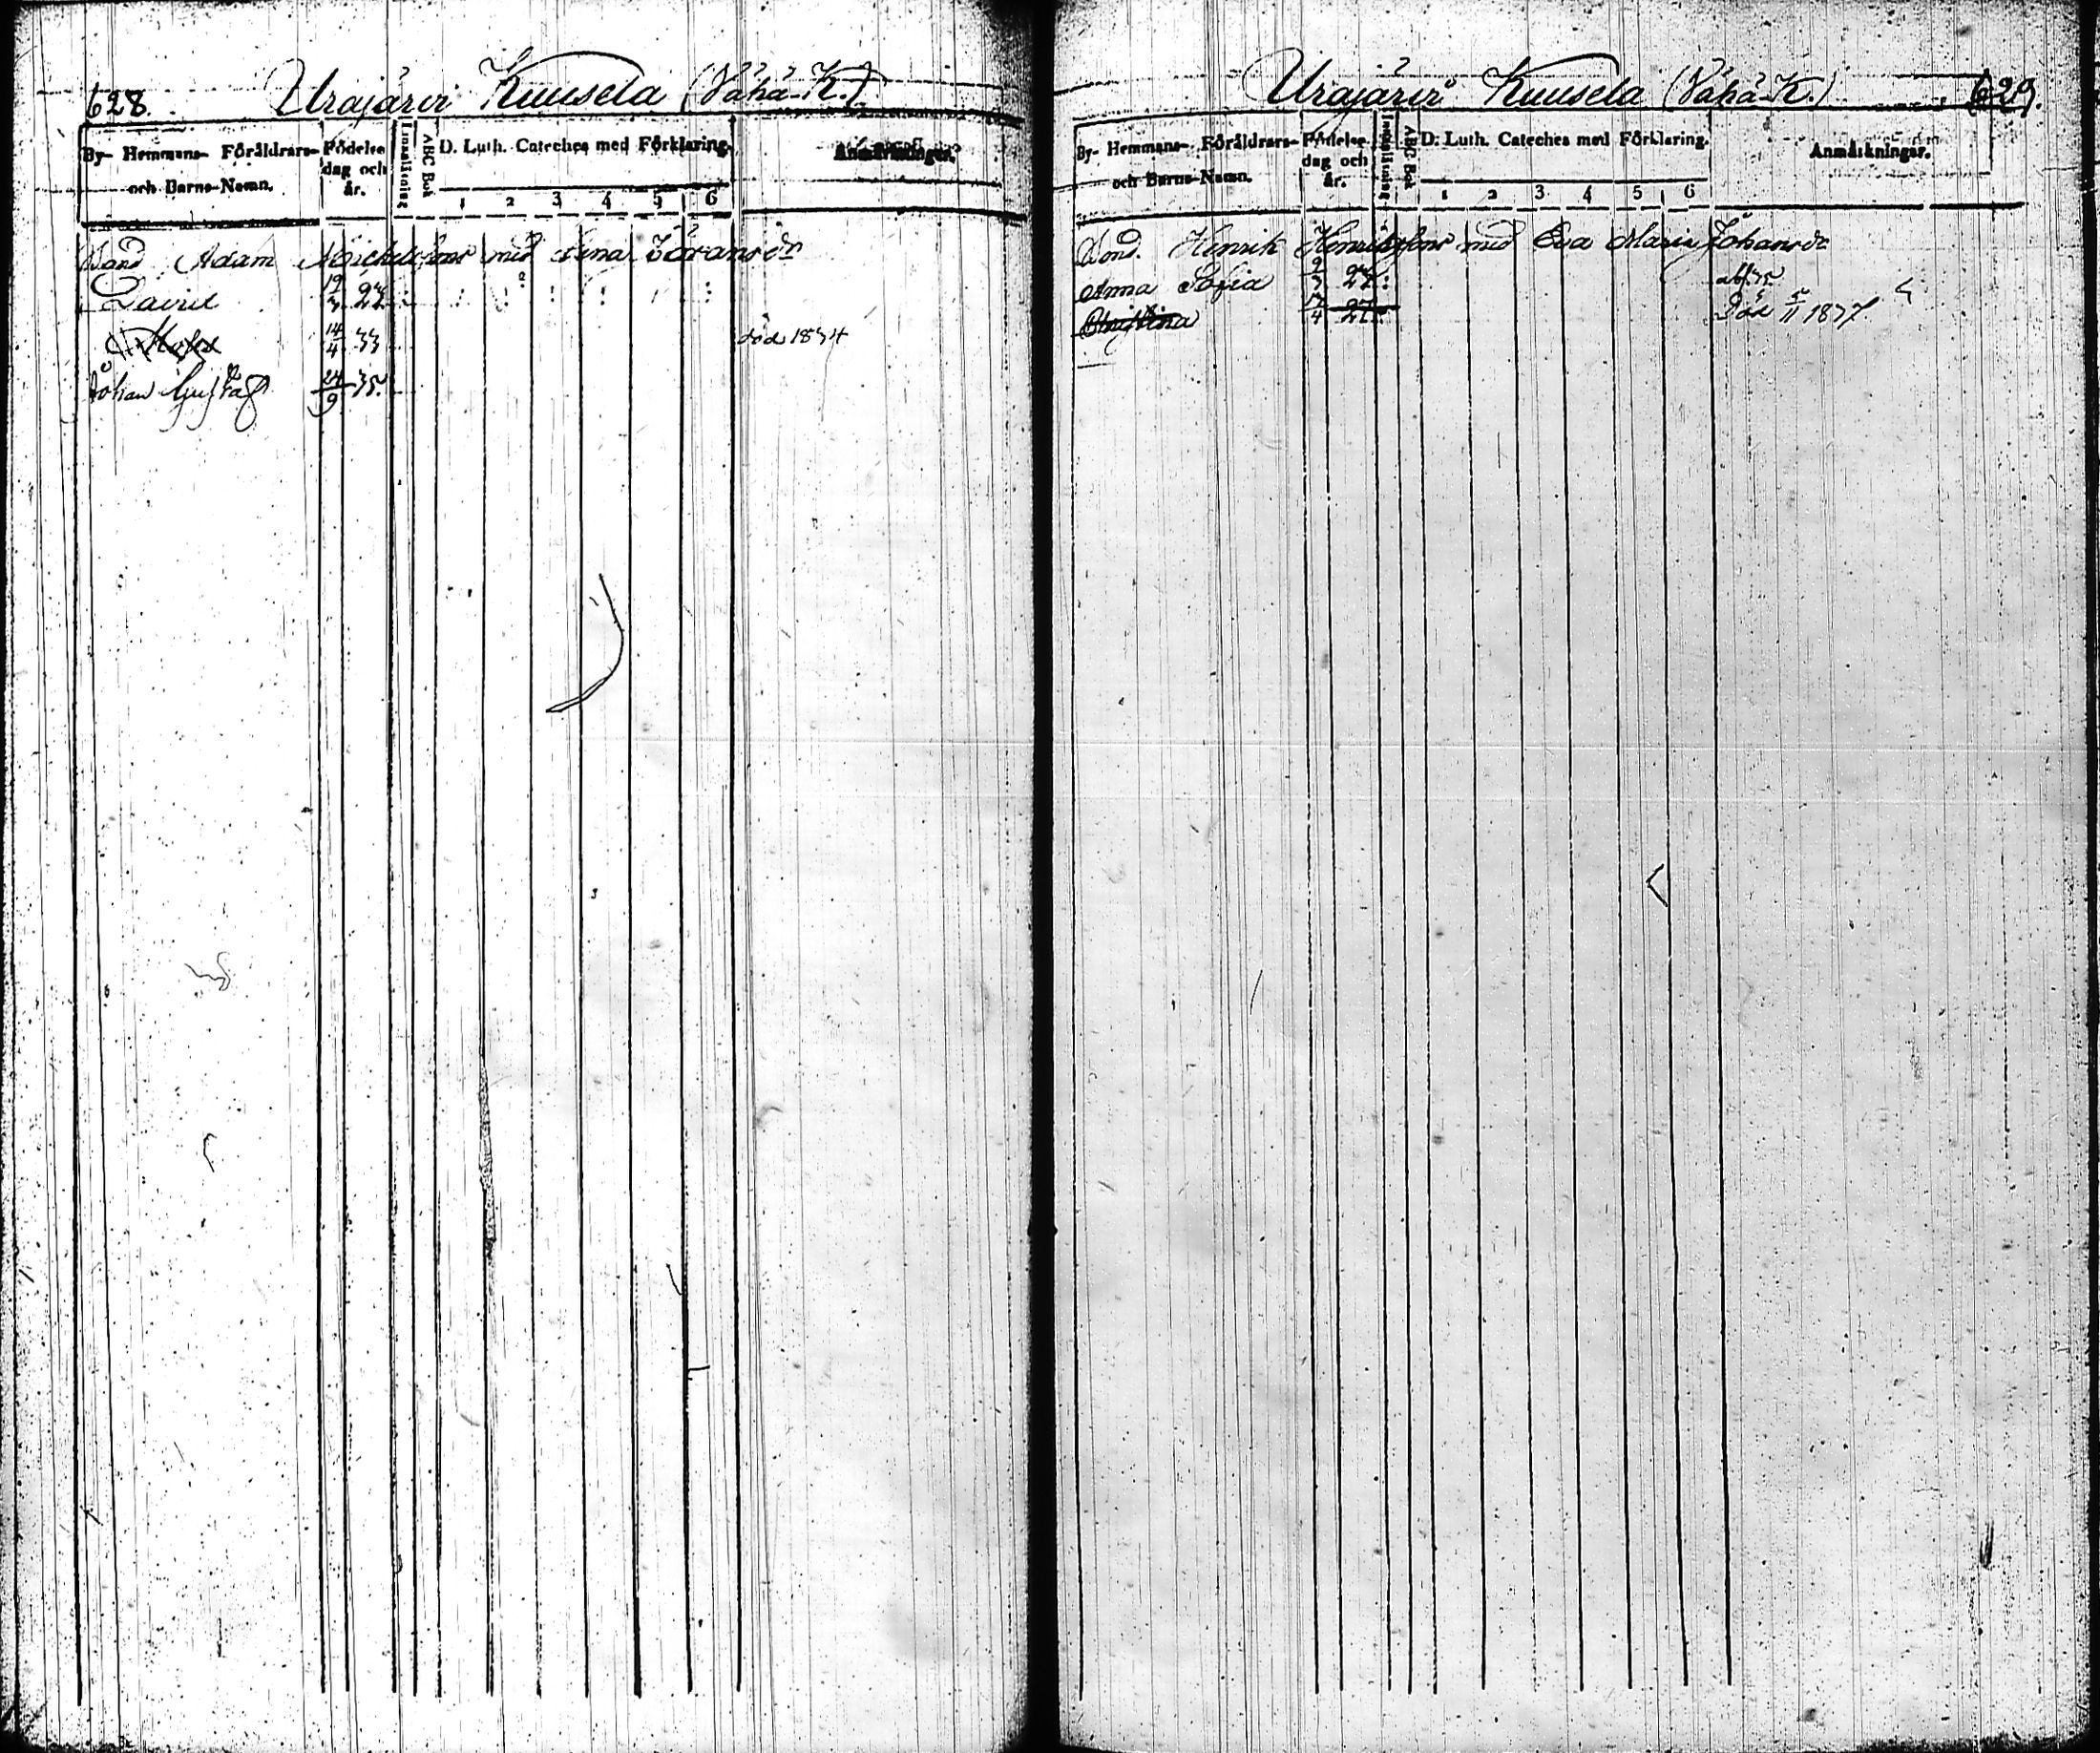 628. Urajärvi Kuusela (Vähä-K.)
By- Hemmans- Föräldrars- och Barns-Namn. Födelse dag och år. Innanläsning ABC Bok D. Luth. Cateches med Förklaring. Anmärkningar.
1 2 3 4 5 6
Bond Adam Michelssons med Lena Göransdr
David 19/3 27
14/4 33 död 1834
Johan Gustaf 24/9 35.
Urajärvi Kuusela (Vähä-K.) 629.
By- Hemmans- Föräldrars- och Barns-Namn. Födelse dag och år. Innanläsning ABC Bok D. Luth. Cateches med Förklaring. Anmärkningar.
1 2 3 4 5 6
Bond. Henrik Henrikssons med Eva Maria Johansdr
Anna Sofia 27
Christina 17/4 27 Död 5/11 1837